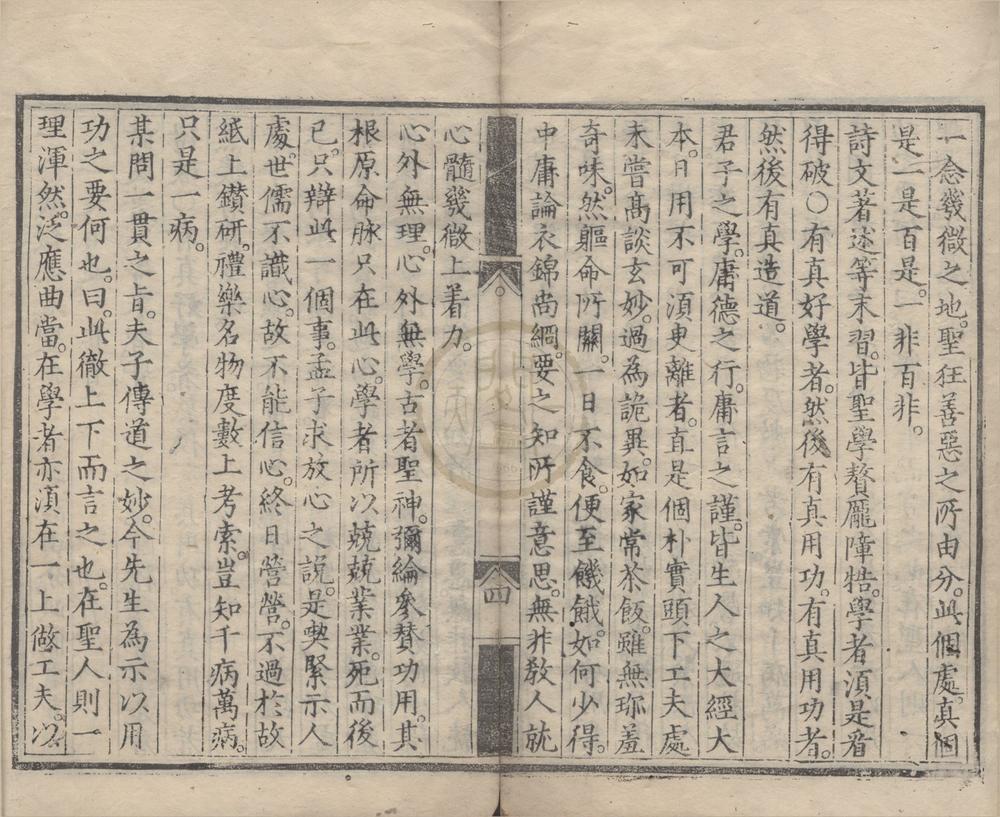 一念幾微之地。聖狂善惡之所由分。此個處。真個
是一是百是。一非百非。
詩文著述等末習。皆聖學贅龎障牿。學者湏是看
得破○有真好學者。然後有真用功。有真用功者。
然後有真造道。
君子之學。庸德之行。庸言之謹。皆生人之大經大
本。日用不可須臾離者。直是個朴實頭下工夫處
未嘗高談玄妙。過為詭異。如家常茶飯。雖無珎羞
奇味。然軀命所關。一日不食。便至饑餓。如何少得。
中庸論衣錦尚綱。要之知所謹意思。無非教人就
心髓幾微上着力。
心外無理。心外無學。古者聖神。彌綸叅賛功用。其
根原命脉只在此心。學者所以兢兢業業。死而後
已。只辯此一個事。孟子求放心之説。是喫緊示人
處。世儒不識心。故不能信心。終日營營。不過扵故
紙上鑚研。禮樂名物度數上考索。豈知千病萬病。
只是一病。
某問一貫之旨。夫子傳道之妙。今先生為示以用
功之要何也。曰。此徹上下而言之也。在聖人則一
理渾然。泛應曲當。在學者亦湏在一上做工夫。以
四